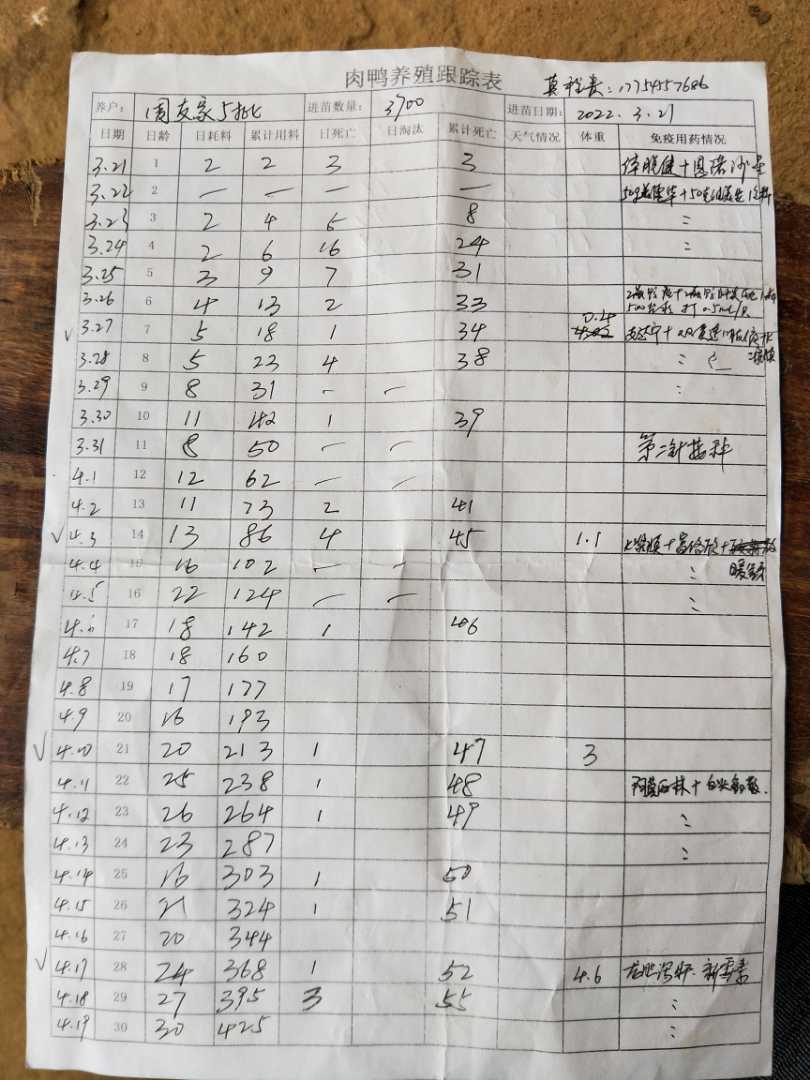 肉鸭养殖跟踪表 : 17754557686
养户: 周友家5批 进苗数量: 3700 进苗日期: 2022.3.21
日期 日龄 日耗料 累计用料 日死亡 日淘汰 累计死亡 天气情况 体重 免疫用药情况
3.21 1 2 2 3 3
3.22 2 — — — —
3.23 3 2 4 5 8 〃
3.24 4 2 6 16 24 〃
3.25 5 3 9 7 31
3.26 6 4 13 2 33 打0.5ml/只
√ 3.27 7 5 18 1 34 0.4
3.28 8 5 23 4 38 〃
3.29 9 8 31 — — 〃
3.30 10 11 42 1 39
3.31 11 8 50 — — 第二针接种
4.1 12 12 62 — —
4.2 13 11 73 2 41
√ 4.3 14 13 86 4 45 1.1
4.4 15 16 102 — — 〃
4.5 16 22 124 — — 〃
4.6 17 18 142 1 46
4.7 18 18 160
4.8 19 17 177
4.9 20 16 193
√ 4.10 21 20 213 1 47 3
4.11 22 25 238 1 48
4.12 23 26 264 1 49 〃
4.13 24 23 287 〃
4.14 25 16 303 1 50
4.15 26 21 324 1 51
4.16 27 20 344
√ 4.17 28 24 368 1 52 4.6 龙胆泻肝. 新霉素
4.18 29 27 395 3 55 〃
4.19 30 30 425 〃